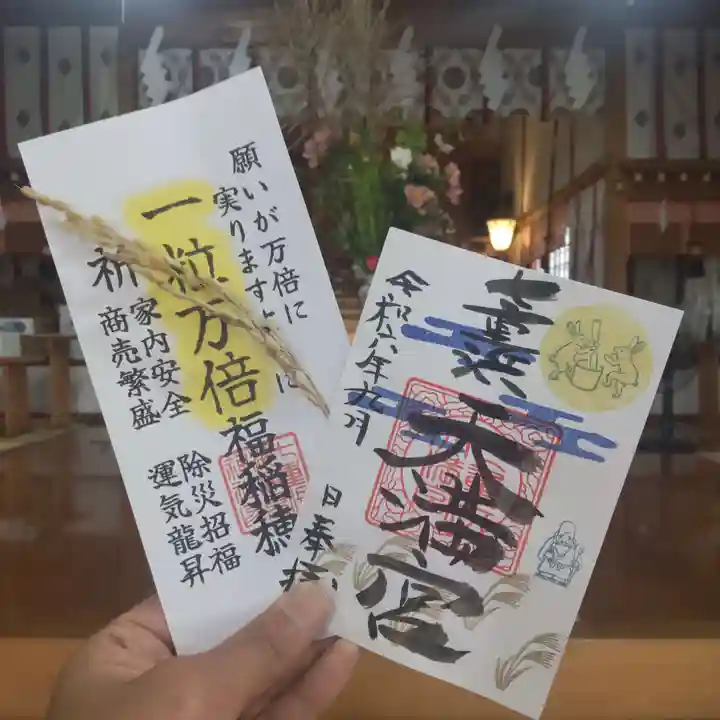 願いが万倍に
実りますように
一粒万倍福稲穂
祈
家内安全
商売繁盛
除災招福
運気龍昇
天満宮
令和六年九月
日奉拝